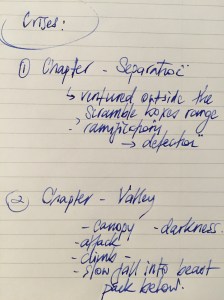 Crises:
① Chapter - Separation
↳ ventured outside the
scramble boxes range
? ramifications
→ detection
② Chapter - Valley
- canopy - darkness.
- attack
- climb -
- slow fall into beast
pack below.